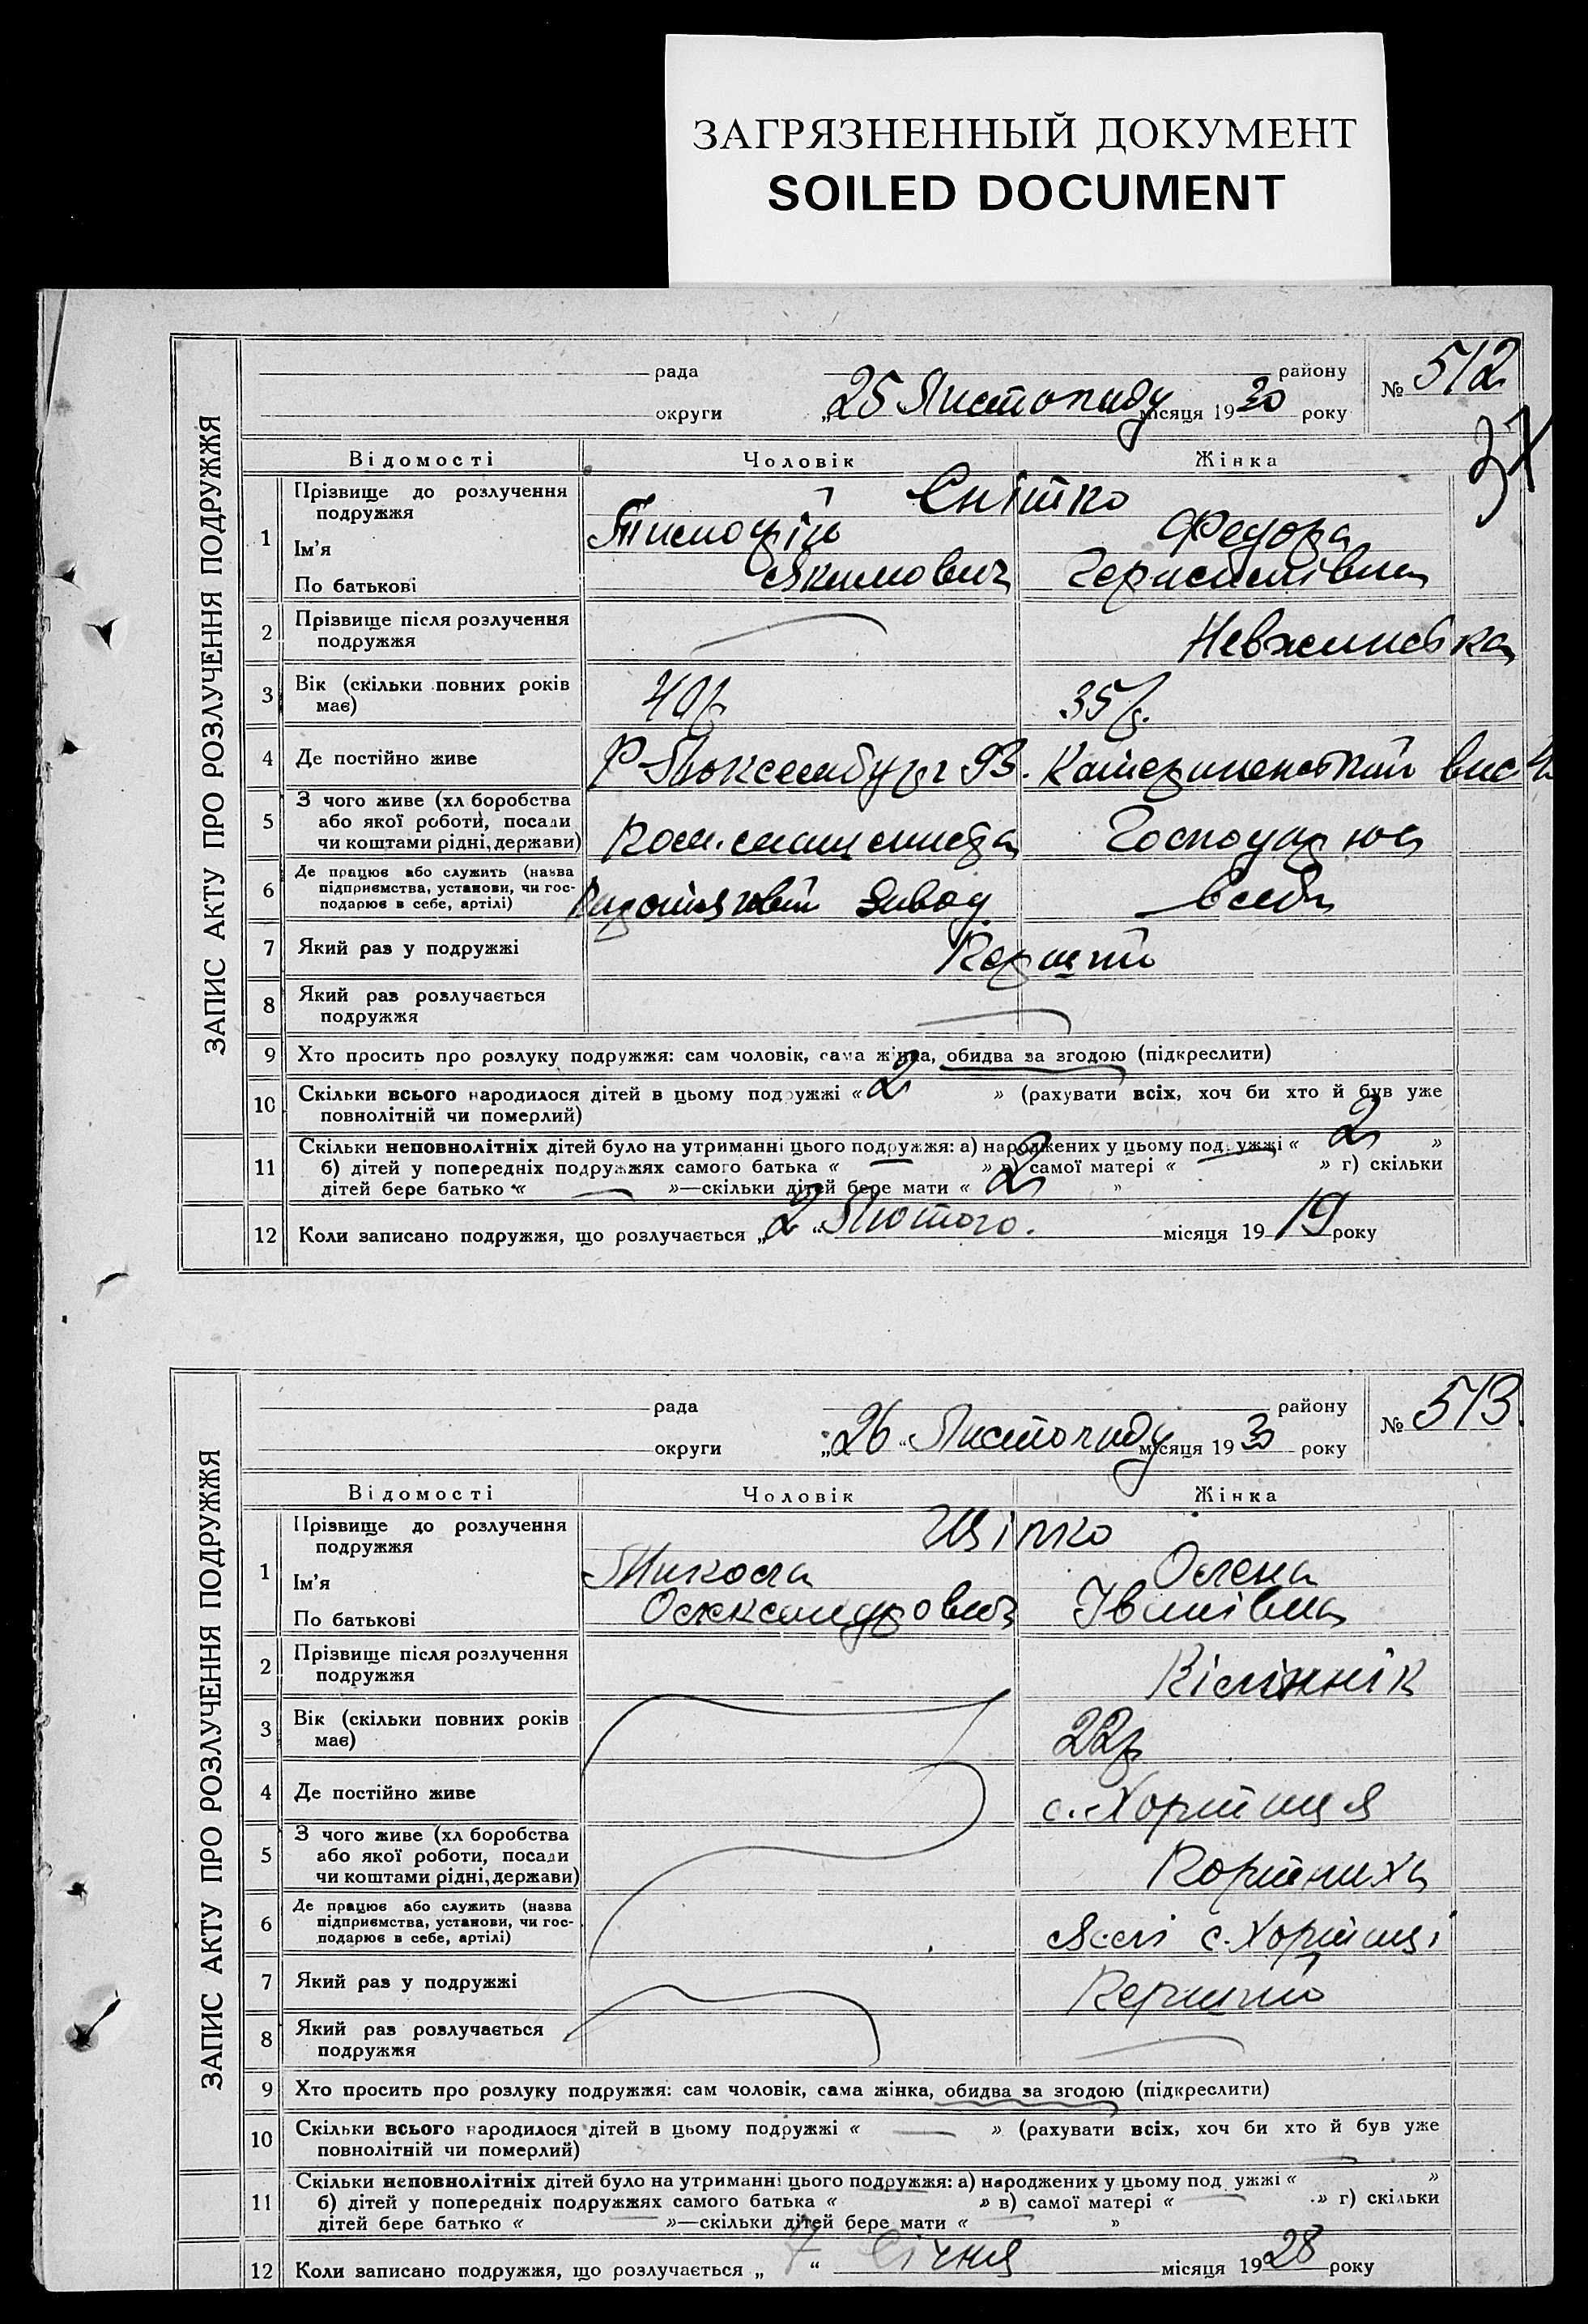 ЗАГРЯЗНЕННЫЙ ДОКУМЕНТ
SOILED DOCUMENT
ЗАПИС АКТУ ПРО РОЗЛУЧЕННЯ ПОДРУЖЖЯ
рада району № 512
округи „25 Листопаду місяця 1930 року
37
Відомості Чоловік Жінка
1 Прізвище до розлучення подружжя Снітко
Ім'я Тимофій Федора
По батькові Якимович Герасимівна
2 Прізвище після розлучення
подружжя
3 Вік (скільки повних років 40р 35р.
має)
4 Де постійно живе Р-Люксембург 93.
5 З чого живе (хліборобства
або якої роботи, посади
чи коштами рідні, держави) Господарює
6 Де працює або служить (назва
підприємства, установи, чи гос-
подарює в себе, артілі) завод в себе
7 Який раз у подружжі Перший
8 Який раз розлучається
подружжя
9 Хто просить про розлуку подружжя: сам чоловік, сама жінка, обидва за згодою (підкреслити)
10 Скільки всього народилося дітей в цьому подружжі « 2 » (рахувати всіх, хоч би хто й був уже
повнолітній чи померлий)
11 Скільки неповнолітніх дітей було на утриманні цього подружжя: а) народжених у цьому подружжі « 2 »
б) дітей у попередніх подружжях самого батька « — » в) самої матері « — » г) скільки
дітей бере батько « — »—скільки дітей бере мати « 2 »
12 Коли записано подружжя, що розлучається „2 “ Лютого. місяця 1919 року
ЗАПИС АКТУ ПРО РОЗЛУЧЕННЯ ПОДРУЖЖЯ
рада району № 513.
округи „26“ Листопаду місяця 1930 року
Відомості Чоловік Жінка
1 Прізвище до розлучення
подружжя
Ім'я Микола Олена
По батькові Олександрович Іванівна
2 Прізвище після розлучення
подружжя
3 Вік (скільки повних років 22р
має)
4 Де постійно живе с. Хортиця
5 З чого живе (хліборобства
або якої роботи, посади
чи коштами рідні, держави)
6 Де працює або служить (назва
підприємства, установи, чи гос-
подарює в себе, артілі) Яслі с. Хортиці
7 Який раз у подружжі Перший
8 Який раз розлучається
подружжя
9 Хто просить про розлуку подружжя: сам чоловік, сама жінка, обидва за згодою (підкреслити)
10 Скільки всього народилося дітей в цьому подружжі « — » (рахувати всіх, хоч би хто й був уже
повнолітній чи померлий)
11 Скільки неповнолітніх дітей було на утриманні цього подружжя: а) народжених у цьому подружжі « — »
б) дітей у попередніх подружжях самого батька « — » в) самої матері « — » г) скільки
дітей бере батько « — »—скільки дітей бере мати « — »
12 Коли записано подружжя, що розлучається „ 7 “ Січня місяця 1928 року